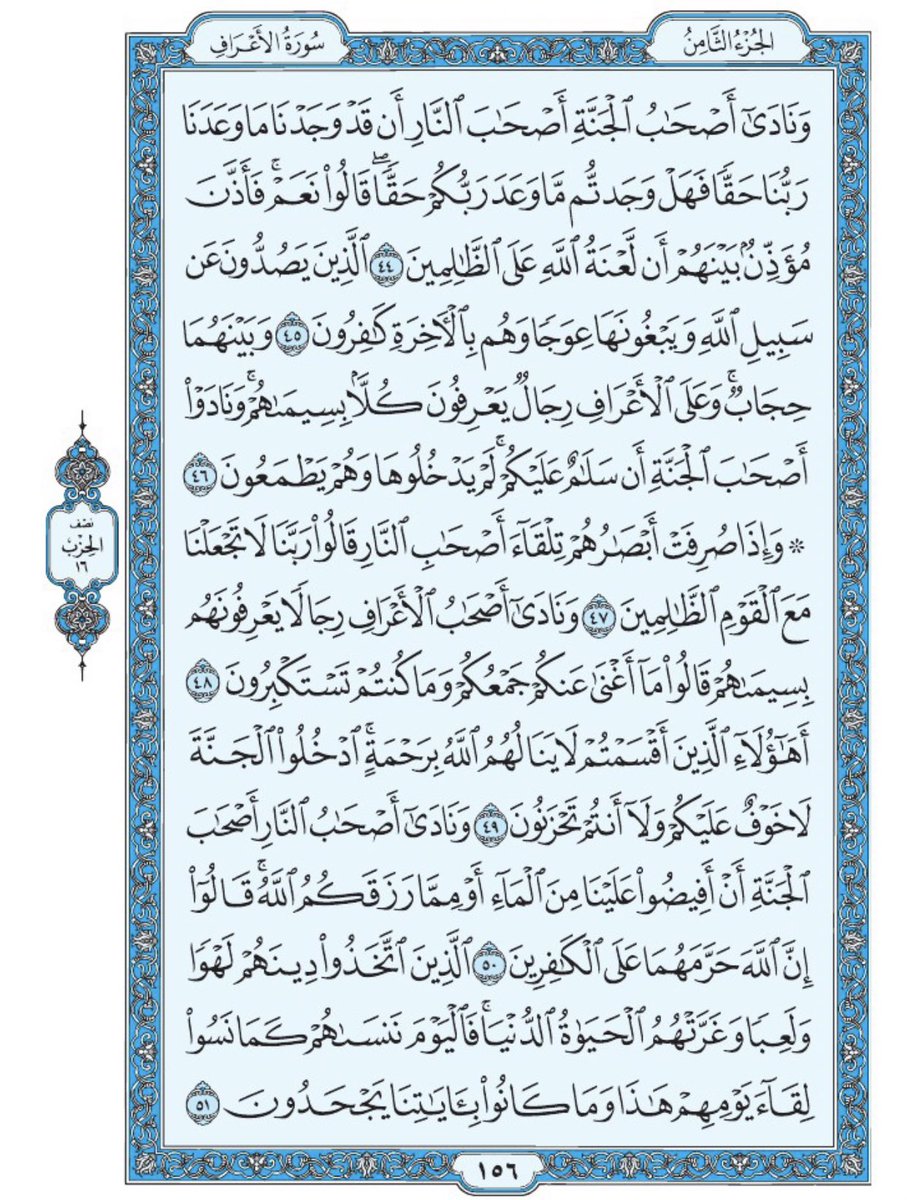 الجُزْءُ الثَّامِنُ
سُورَةُ الأَعْرَافِ
وَنَادَىٰٓ أَصْحَٰبُ ٱلْجَنَّةِ أَصْحَٰبَ ٱلنَّارِ أَن قَدْ وَجَدْنَا مَا وَعَدَنَا
رَبُّنَا حَقًّا فَهَلْ وَجَدتُّم مَّا وَعَدَ رَبُّكُمْ حَقًّا ۖ قَالُوا۟ نَعَمْ ۚ فَأَذَّنَ
مُؤَذِّنٌۢ بَيْنَهُمْ أَن لَّعْنَةُ ٱللَّهِ عَلَى ٱلظَّٰلِمِينَ ٤٤ ٱلَّذِينَ يَصُدُّونَ عَن
سَبِيلِ ٱللَّهِ وَيَبْغُونَهَا عِوَجًا وَهُم بِٱلْـَٔاخِرَةِ كَٰفِرُونَ ٤٥ وَبَيْنَهُمَا
حِجَابٌ ۚ وَعَلَى ٱلْأَعْرَافِ رِجَالٌ يَعْرِفُونَ كُلًّۢا بِسِيمَىٰهُمْ ۚ وَنَادَوْا۟
أَصْحَٰبَ ٱلْجَنَّةِ أَن سَلَٰمٌ عَلَيْكُمْ ۚ لَمْ يَدْخُلُوهَا وَهُمْ يَطْمَعُونَ ٤٦
۞ وَإِذَا صُرِفَتْ أَبْصَٰرُهُمْ تِلْقَآءَ أَصْحَٰبِ ٱلنَّارِ قَالُوا۟ رَبَّنَا لَا تَجْعَلْنَا
مَعَ ٱلْقَوْمِ ٱلظَّٰلِمِينَ ٤٧ وَنَادَىٰٓ أَصْحَٰبُ ٱلْأَعْرَافِ رِجَالًا يَعْرِفُونَهُم
بِسِيمَىٰهُمْ قَالُوا۟ مَآ أَغْنَىٰ عَنكُمْ جَمْعُكُمْ وَمَا كُنتُمْ تَسْتَكْبِرُونَ ٤٨
أَهَٰٓؤُلَآءِ ٱلَّذِينَ أَقْسَمْتُمْ لَا يَنَالُهُمُ ٱللَّهُ بِرَحْمَةٍ ۚ ٱدْخُلُوا۟ ٱلْجَنَّةَ
لَا خَوْفٌ عَلَيْكُمْ وَلَآ أَنتُمْ تَحْزَنُونَ ٤٩ وَنَادَىٰٓ أَصْحَٰبُ ٱلنَّارِ أَصْحَٰبَ
ٱلْجَنَّةِ أَنْ أَفِيضُوا۟ عَلَيْنَا مِنَ ٱلْمَآءِ أَوْ مِمَّا رَزَقَكُمُ ٱللَّهُ ۚ قَالُوٓا۟
إِنَّ ٱللَّهَ حَرَّمَهُمَا عَلَى ٱلْكَٰفِرِينَ ٥٠ ٱلَّذِينَ ٱتَّخَذُوا۟ دِينَهُمْ لَهْوًا
وَلَعِبًا وَغَرَّتْهُمُ ٱلْحَيَوٰةُ ٱلدُّنْيَا ۚ فَٱلْيَوْمَ نَنسَىٰهُمْ كَمَا نَسُوا۟
لِقَآءَ يَوْمِهِمْ هَٰذَا وَمَا كَانُوا۟ بِـَٔايَٰتِنَا يَجْحَدُونَ ٥١
نصف
الحِزْبُ
١٦
١٥٦